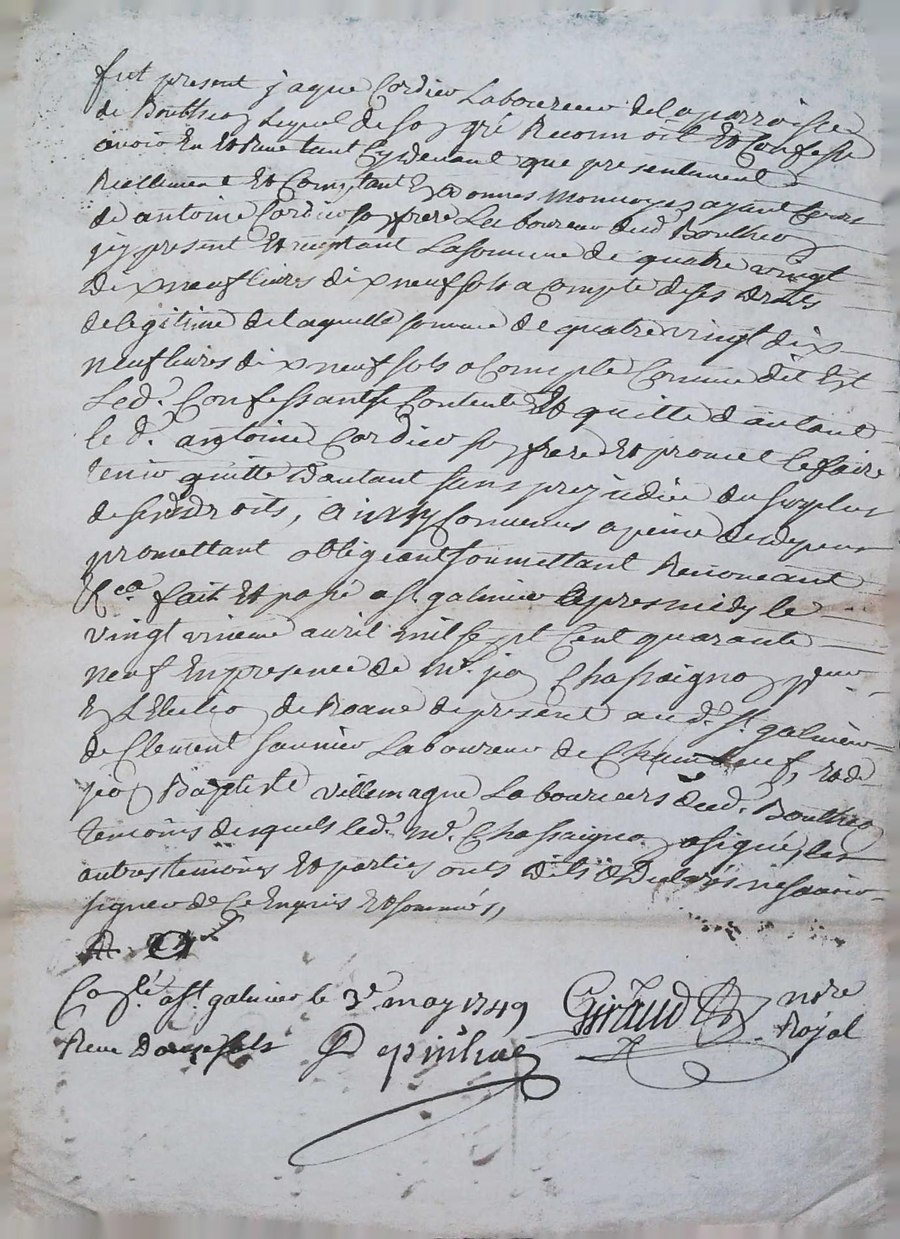 fut present jaque Cordier Laboureur de la parroisse
de Boutheon Lequel de son gré Reconnoit Et Confesse
avoir Eu Et Reçu tant Cydevant que presentement
Reellement Et Comptant En bonnes Monnoyes ayant Cours
de antoine Cordier son frere Laboureur dud. Boutheon
icy present Et acceptant La somme de quatre vingt
dix neuf livres dix neuf sols a compte de ses droits
de legitime de laquelle somme de quatre vingt dix
neuf livres dix neuf sols a Compte Comme dit Est
Led. Confessant se Contente Et quitte d'autant
led. antoine Cordier son frere Et promet le faire
tenir quitte d'autant sans prejudice du surplus
de ses droits, ainsy Convenus a peine de depens
promettant obligeant soumettant Renonceant
fait Et passé a St. galmier apres midy le
vingt avril mil sept Cent quarante
neuf En presence de Mr. jean Chassaignon
En L'Election de Roane de present aud. St. galmier
de Clement saunier Laboureur de Et de
jean Baptiste villemagne Laboureurs dud. Boutheon
temoins desquels led. Mr. Chassaignon a signé, les
autres temoins Et parties ont dit ne sçavoir
signer de Ce Enquis Et sommés,,
Conlé. a St. galmier le 3e. may 1749 Giraud notre
Reçu Douze sols Depinhac Royal